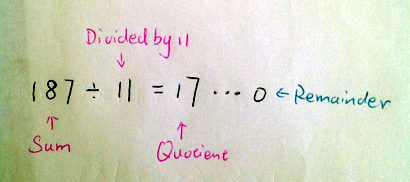 Divided by 11
187 ÷ 11 = 17 ... 0 ← Remainder
Sum
Quocient